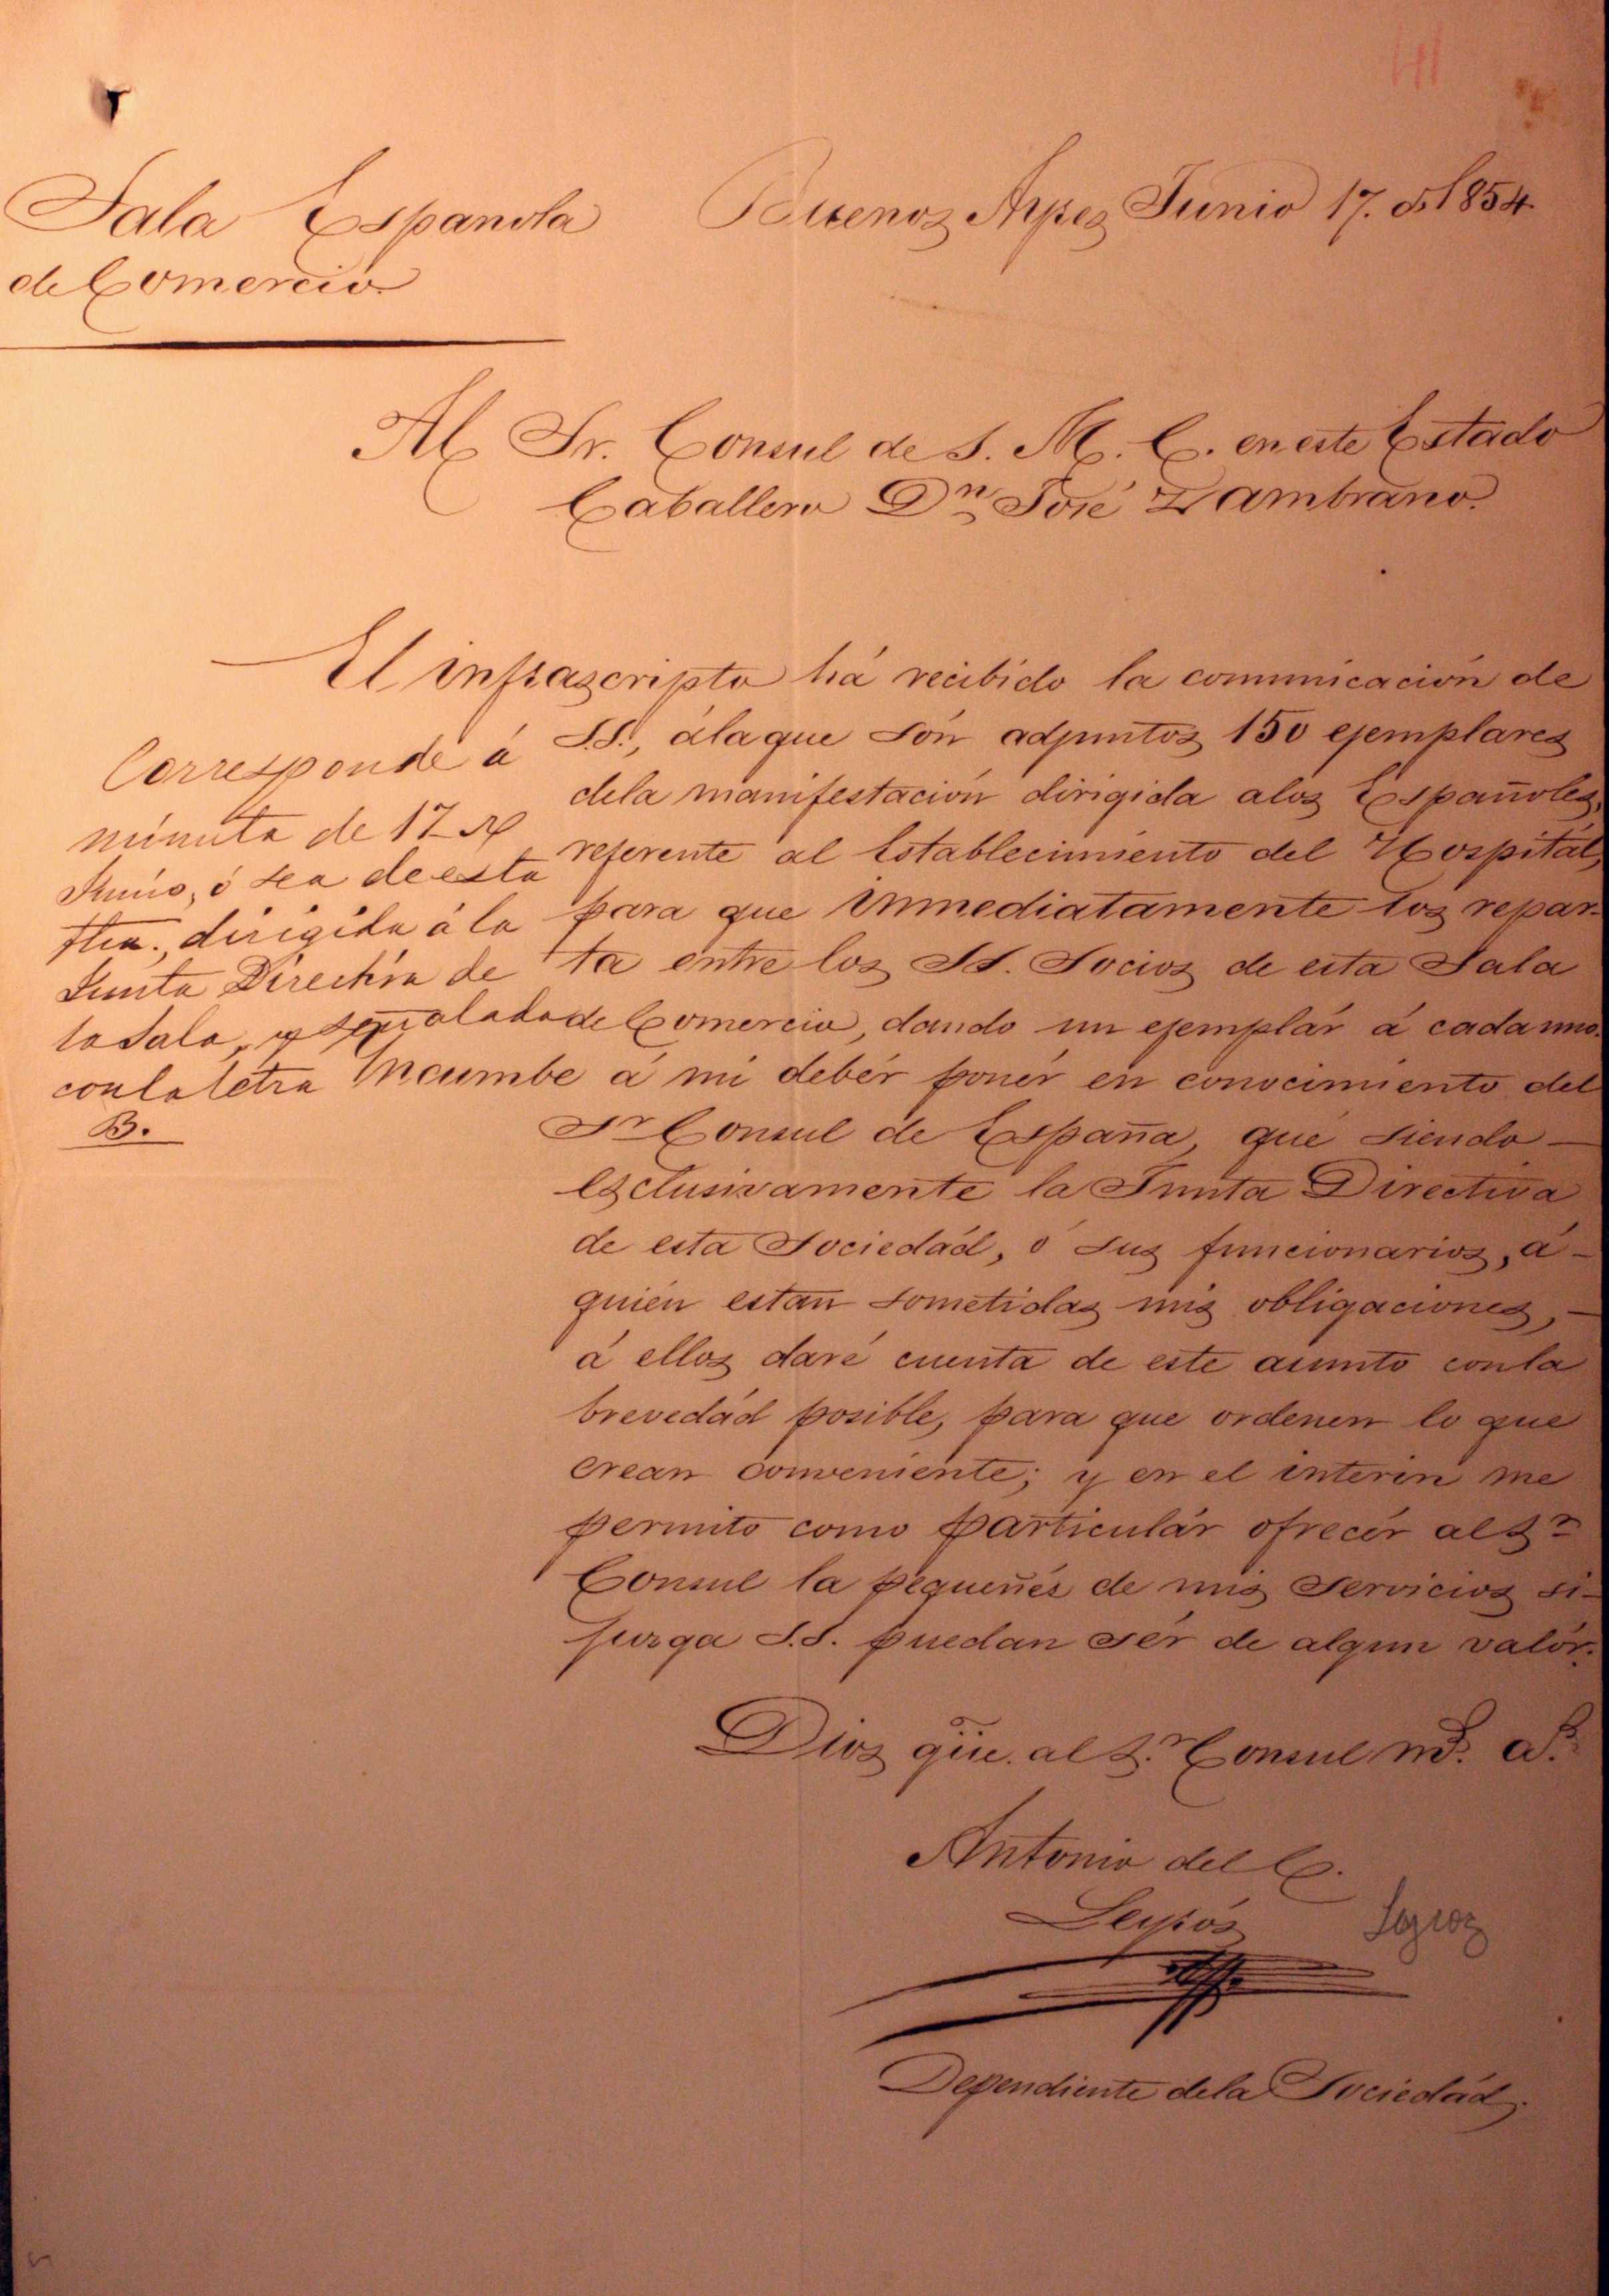 Sala Española
de Comercio
Buenos Ayres Junio 17. de 1854
Al Sr. Consul de S. M. C. en este Estado
Caballero Dn José Zambrano.
El infrascripto há recibido la comunicación de
S.S., ála que són adjuntos 150 ejemplares
dela manifestación dirigida alos Españoles,
referente al Establecimiento del Hospitál,
para que inmediatamente los repar-
ta entre los SS. Socios de esta Sala
de Comercio, dando un ejemplár á cada uno.
Incumbe á mi debér ponér en conocimiento del
Sr Consul de España, que siendo
esclusivamente la Junta Directiva
de esta Sociedád, ó sus funcionarios, á
quién estan sometidas mis obligaciones,
á ellos daré cuenta de este asunto conla
brevedád posible, para que ordenen lo que
crean conveniente; y en el interin me
permito como particulár ofrecér al Sr
Consul la pequeñés de mis servicios si
jusga S.S. puedan sér de algun valór.
Dios güe. al Sr. Consul ms. as.
Antonio del C.
Leyrós
Leyroz
Dependiente dela Sociedád.
Corresponde á
minuta de 17 de
Junio, ó sea de esta
fha., dirigida á la
Junta Directiva de
la Sala, y señalada
con la letra
B.